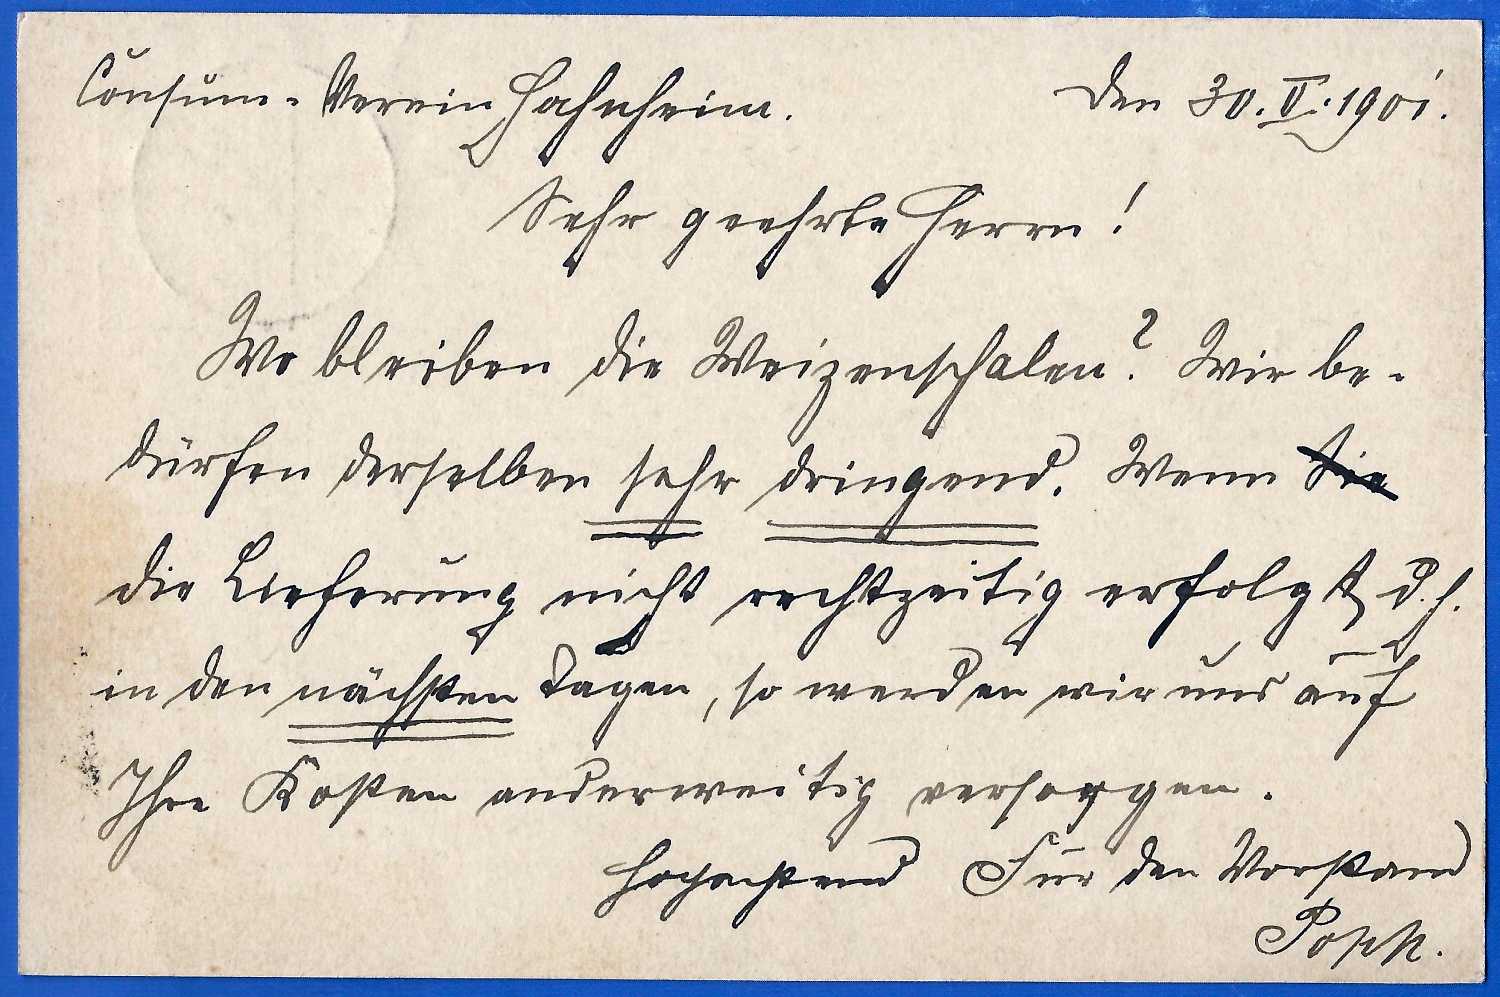 Consum-Verein Hahnheim. Den 30. V. 1901.
Sehr geehrte Herrn!
Wo bleiben die Weizenschalen? Wir be-
dürfen derselben sehr dringend. Wenn Sie
die Lieferung nicht rechtzeitig erfolgt, d. h.
in den nächsten Tagen, so werden wir uns auf
Ihre Kosten anderweitig versorgen.
Hochachtend Für den Vorstand
Popp.